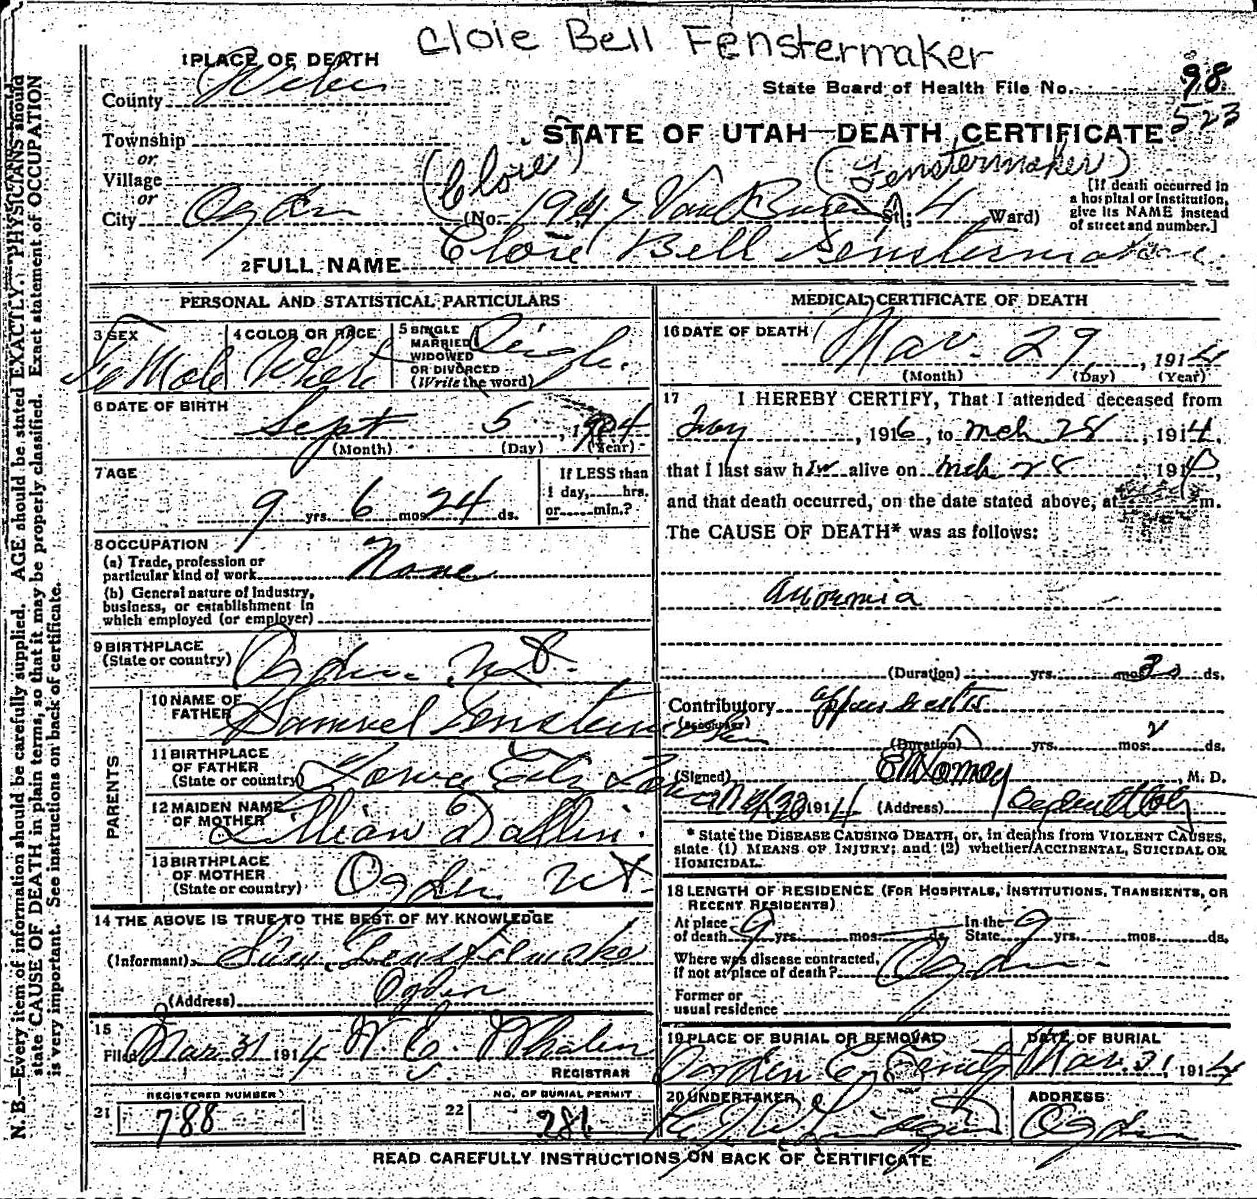 Cloie Bell Fenstermaker
1 PLACE OF DEATH
County Weber
State Board of Health File No. 98
523
STATE OF UTAH—DEATH CERTIFICATE
Township
or
Village
or
(Cloie) (Fenstermaker)
City Ogden (No. 1947 Van Buren St. 4 Ward)
[If death occurred in
a hospital or institution,
give its NAME instead
of street and number.]
2 FULL NAME Cloie Bell Fenstermaker
PERSONAL AND STATISTICAL PARTICULARS
3 SEX Female
4 COLOR OR RACE White
5 SINGLE
MARRIED
WIDOWED
OR DIVORCED
(Write the word) Single
6 DATE OF BIRTH
Sept 5, 1904
(Month) (Day) (Year)
7 AGE
9 yrs. 6 mos. 24 ds.
If LESS than
1 day, hrs.
or min.?
8 OCCUPATION
(a) Trade, profession or
particular kind of work None
(b) General nature of Industry,
business, or establishment in
which employed (or employer)
9 BIRTHPLACE
(State or country) Ogden Ut.
PARENTS
10 NAME OF
FATHER Samuel Fenstermaker
11 BIRTHPLACE
OF FATHER
(State or country) Iowa City Iowa
12 MAIDEN NAME
OF MOTHER Lillian Dallin.
13 BIRTHPLACE
OF MOTHER
(State or country) Ogden Ut.
14 THE ABOVE IS TRUE TO THE BEST OF MY KNOWLEDGE
(Informant) Sam Fenstermaker
(Address) Ogden
15
Filed Mar. 31 1914 Whalen
REGISTRAR
REGISTERED NUMBER
21 788
NO. OF BURIAL PERMIT
22 281
MEDICAL CERTIFICATE OF DEATH
16 DATE OF DEATH
Mar. 29, 1914
(Month) (Day) (Year)
17 I HEREBY CERTIFY, That I attended deceased from
, 191 , to Mch 28, 1914.
that I last saw h alive on Mch 28 1914
and that death occurred, on the date stated above, at m.
The CAUSE OF DEATH* was as follows:
(Duration) yrs. mos. 30 ds.
Contributory
(SECONDARY)
(Duration) yrs. mos. ds.
(Signed) , M. D.
1914 (Address) Ogden
* State the DISEASE CAUSING DEATH, or, in deaths from VIOLENT CAUSES,
state (1) MEANS OF INJURY; and (2) whether ACCIDENTAL, SUICIDAL OR
HOMICIDAL.
18 LENGTH OF RESIDENCE (FOR HOSPITALS, INSTITUTIONS, TRANSIENTS, OR
RECENT RESIDENTS)
At place
of death 9 yrs. mos. ds. In the
State 9 yrs. mos. ds.
Where was disease contracted,
if not at place of death? Ogden
Former or
usual residence
19 PLACE OF BURIAL OR REMOVAL
Ogden City
DATE OF BURIAL
Mar. 31, 1914
20 UNDERTAKER
ADDRESS
Ogden
READ CAREFULLY INSTRUCTIONS ON BACK OF CERTIFICATE
N. B.—Every item of information should be carefully supplied. AGE should be stated EXACTLY. PHYSICIANS should
state CAUSE OF DEATH in plain terms, so that it may be properly classified. Exact statement of OCCUPATION
is very important. See instructions on back of certificate.